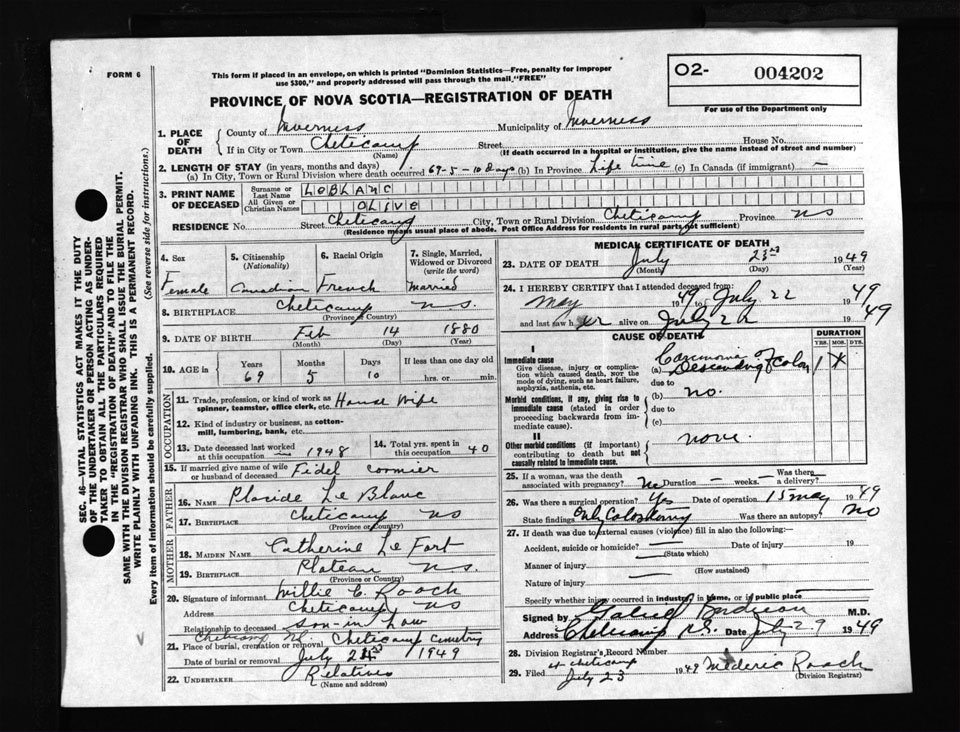 FORM 6
This form if placed in an envelope, on which is printed "Dominion Statistics—Free, penalty for improper
use $300," and properly addressed will pass through the mail, "FREE"
O2- 004202
For use of the Department only
PROVINCE OF NOVA SCOTIA—REGISTRATION OF DEATH
1. PLACE OF DEATH
County of Inverness Municipality of Inverness
If in City or Town Cheticamp Street House No.
(Name) (If death occurred in a hospital or institution, give the name instead of street and number)
2. LENGTH OF STAY (in years, months and days)
(a) In City, Town or Rural Division where death occurred 69-5-10 days (b) In Province Life time (c) In Canada (if immigrant) —
3. PRINT NAME OF DECEASED
Surname or Last Name LeBLANC
All Given or Christian Names OLIVE
RESIDENCE No. Street Cheticamp City, Town or Rural Division Cheticamp Province NS
(Residence means usual place of abode. Post Office Address for residents in rural parts not sufficient)
4. Sex Female
5. Citizenship (Nationality) Canadian
6. Racial Origin French
7. Single, Married, Widowed or Divorced (write the word) Married
8. BIRTHPLACE Cheticamp N.S.
(Province or Country)
9. DATE OF BIRTH Feb 14 1880
(Month) (Day) (Year)
10. AGE in Years Months Days If less than one day old
69 5 10 hrs. or min.
OCCUPATION
11. Trade, profession, or kind of work as spinner, teamster, office clerk, etc. House Wife
12. Kind of industry or business, as cotton-mill, lumbering, bank, etc.
13. Date deceased last worked at this occupation 1948
14. Total yrs. spent in this occupation 40
15. If married give name of wife or husband of deceased Fidel Cormier
FATHER
16. Name Placide Le Blanc
17. Birthplace Cheticamp NS
(Province or Country)
MOTHER
18. Maiden Name Catherine Le Fort
19. Birthplace Plateau N.S.
(Province or Country)
20. Signature of informant Willie C. Roach
Address Cheticamp NS
Relationship to deceased Son-in-law
21. Place of burial, cremation or removal Cheticamp Cemetery
Date of burial or removal July 1949
22. UNDERTAKER Relatives
(Name and address)
MEDICAL CERTIFICATE OF DEATH
23. DATE OF DEATH July 23rd 1949
(Month) (Day) (Year)
24. I HEREBY CERTIFY that I attended deceased from:
May 49 to July 22 1949
and last saw her alive on July 22 1949
CAUSE OF DEATH
DURATION
YRS. MOS. DYS.
I
Immediate cause
Give disease, injury or complication which caused death, NOT the mode of dying, such as heart failure, asphyxia, asthenia, etc.
(a) Carcinoma of Descending Colon 1
due to
(b) no.
due to
(c)
Morbid conditions, if any, giving rise to immediate cause (stated in order proceeding backwards from immediate cause).
II
Other morbid conditions (if important) contributing to death but not causally related to immediate cause.
none.
25. If a woman, was the death associated with pregnancy? No Duration — weeks. Was there a delivery? —
26. Was there a surgical operation? Yes Date of operation 15 May 1949
State findings Only Colostomy Was there an autopsy? No
27. If death was due to external causes (violence) fill in also the following:—
Accident, suicide or homicide? Date of injury 19
(State which)
Manner of injury
(How sustained)
Nature of injury
Specify whether injury occurred in industry, in home, or in public place
Signed by M.D.
Address Cheticamp Date July 29 1949
28. Division Registrar's, Record Number
29. Filed at Cheticamp July 23 1949 Mederic Roach
(Division Registrar)
SEC. 46—VITAL STATISTICS ACT MAKES IT THE DUTY
OF THE UNDERTAKER OR PERSON ACTING AS UNDER-
TAKER TO OBTAIN ALL THE PARTICULARS REQUIRED
IN THE "REGISTRATION OF DEATH" AND TO FILE THE
SAME WITH THE DIVISION REGISTRAR WHO SHALL ISSUE THE BURIAL PERMIT.
WRITE PLAINLY WITH UNFADING INK. THIS IS A PERMANENT RECORD.
Every item of information should be carefully supplied. (See reverse side for instructions.)